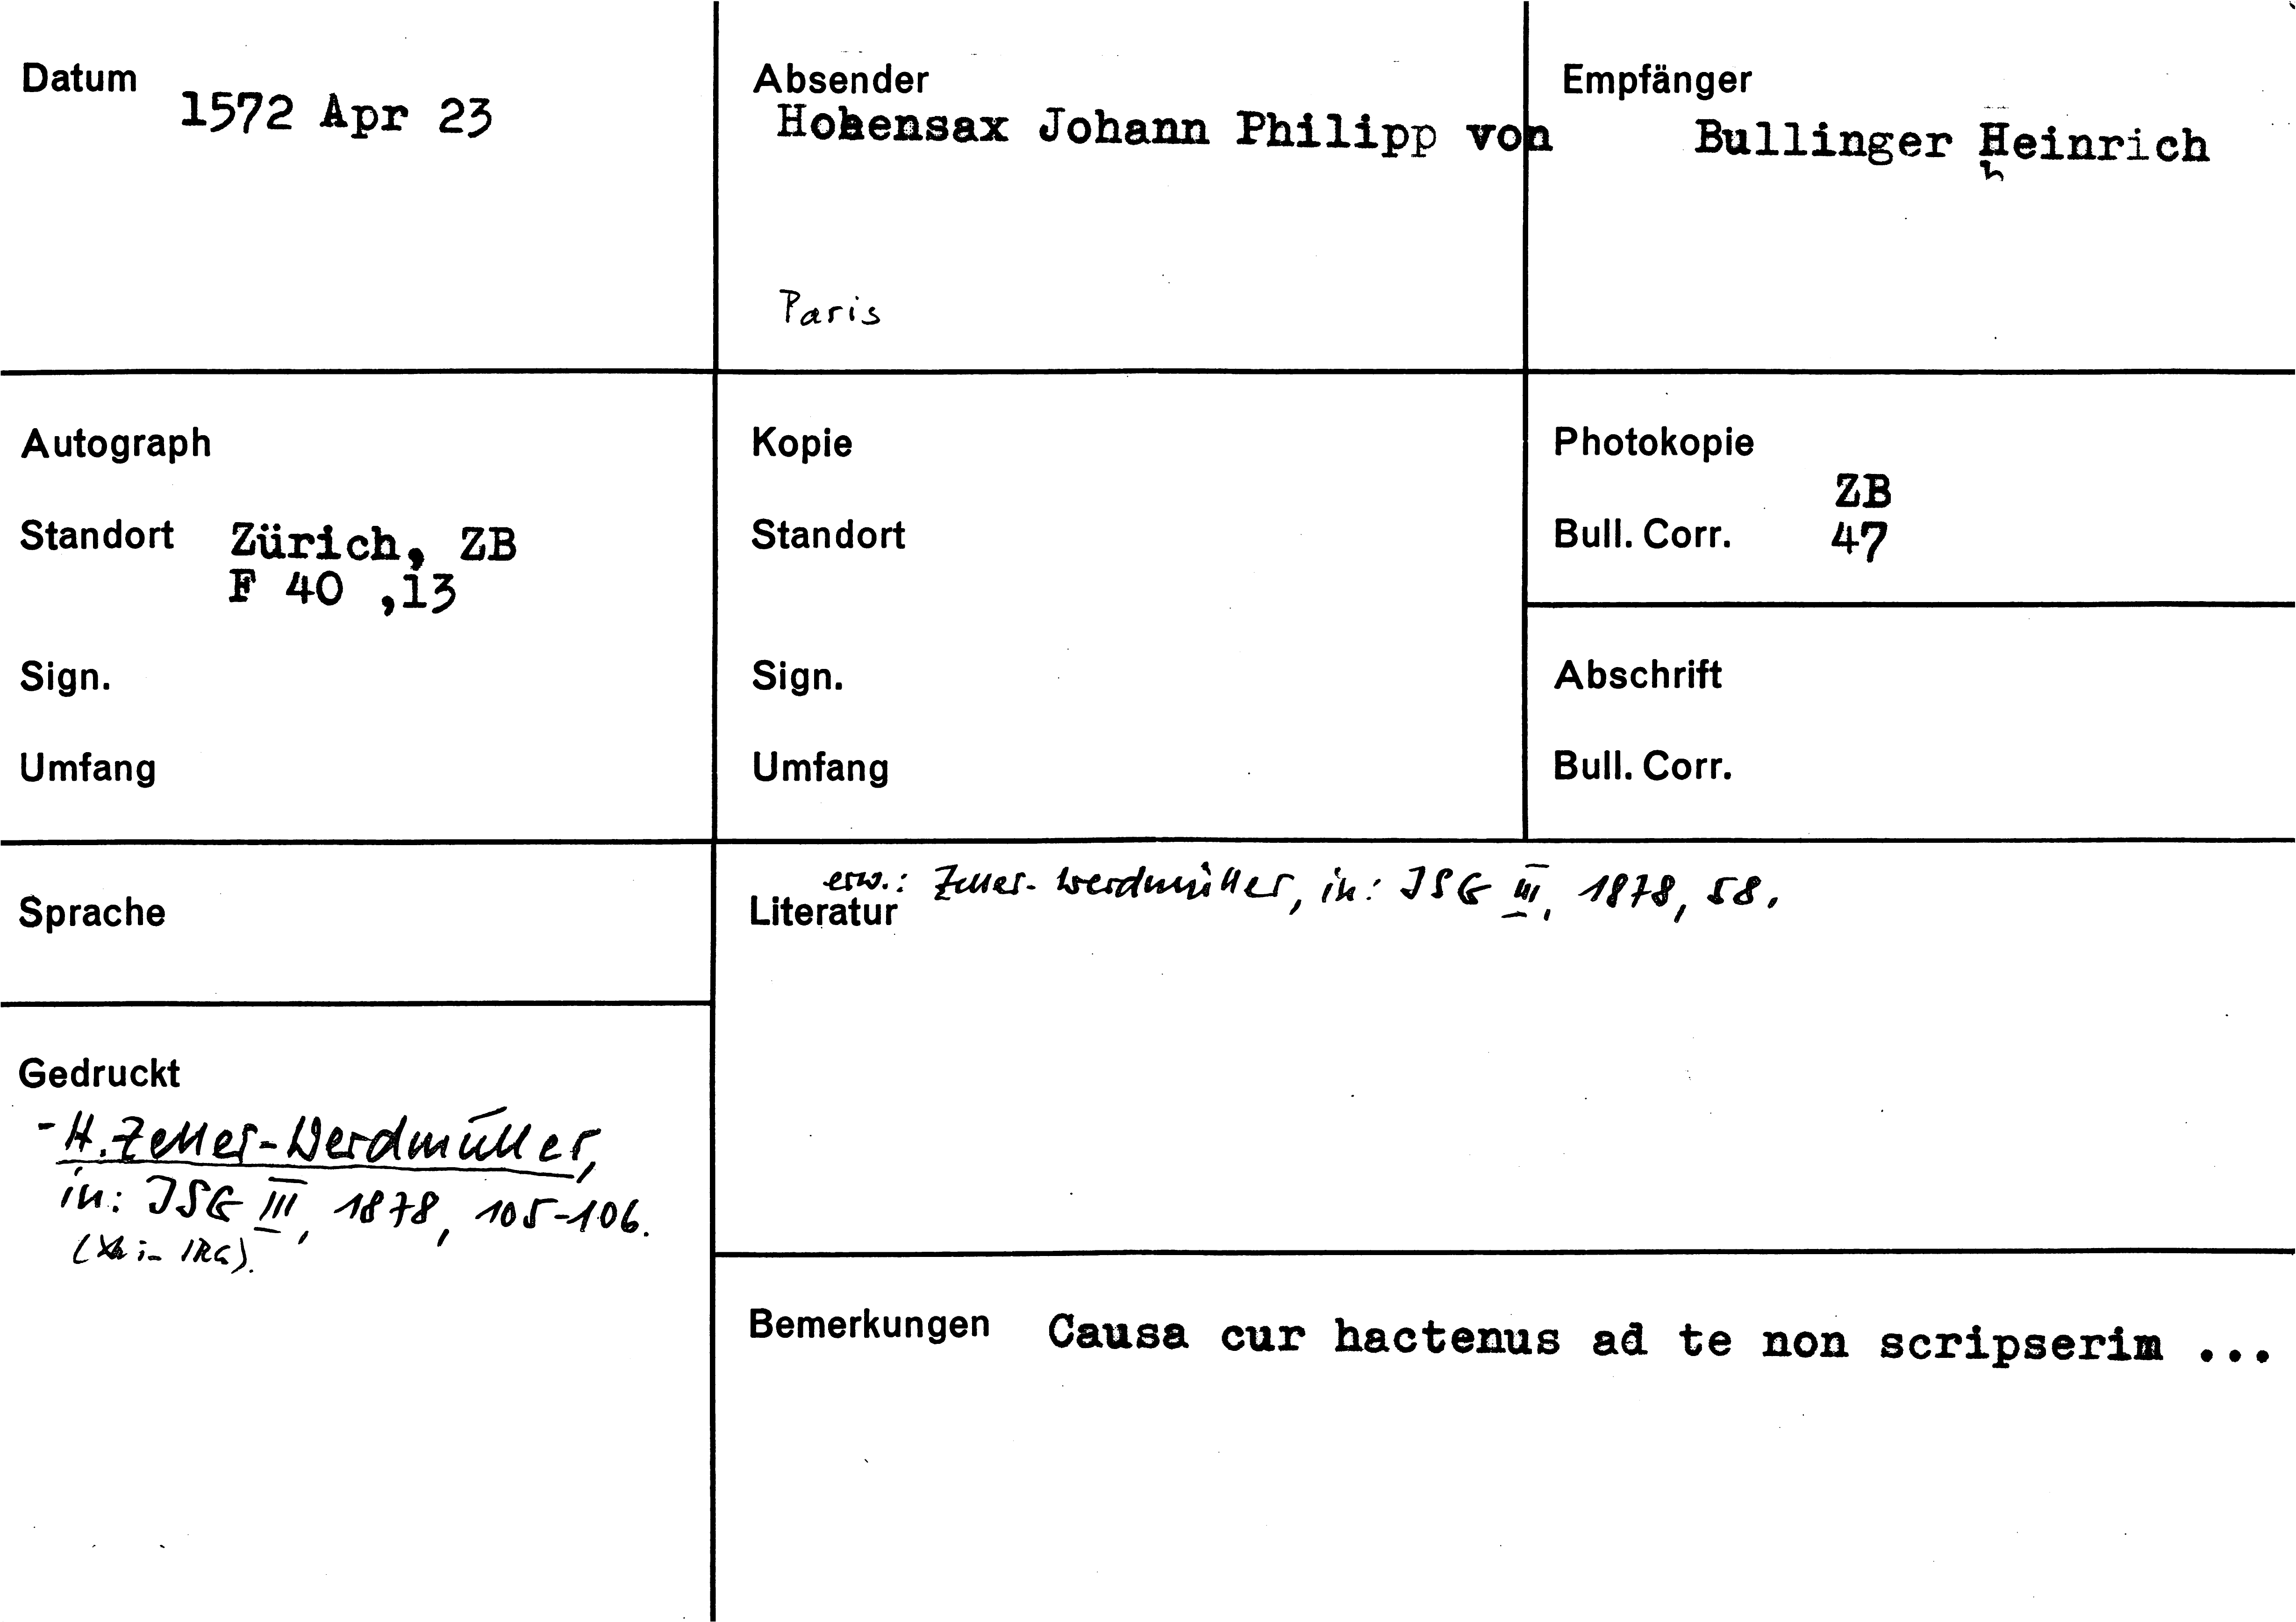 Datum
1572 Apr 23
Absender
Hohensax Johann Philipp von
Paris
Empfänger
Bullinger Heinrich
Autograph
Standort Zürich, ZB
F 40 ,13
Sign.
Umfang
Kopie
Standort
Sign.
Umfang
Photokopie
ZB
Bull. Corr. 47
Abschrift
Bull. Corr.
Sprache
Gedruckt
- H. Zeller-Werdmüller,
in: JSG III, 1878, 105-106.
IRG).
erw.: Zeller-Werdmüller, in: JSG III, 1878, 58.
Literatur
Bemerkungen Causa cur hactenus ad te non scripserim ...